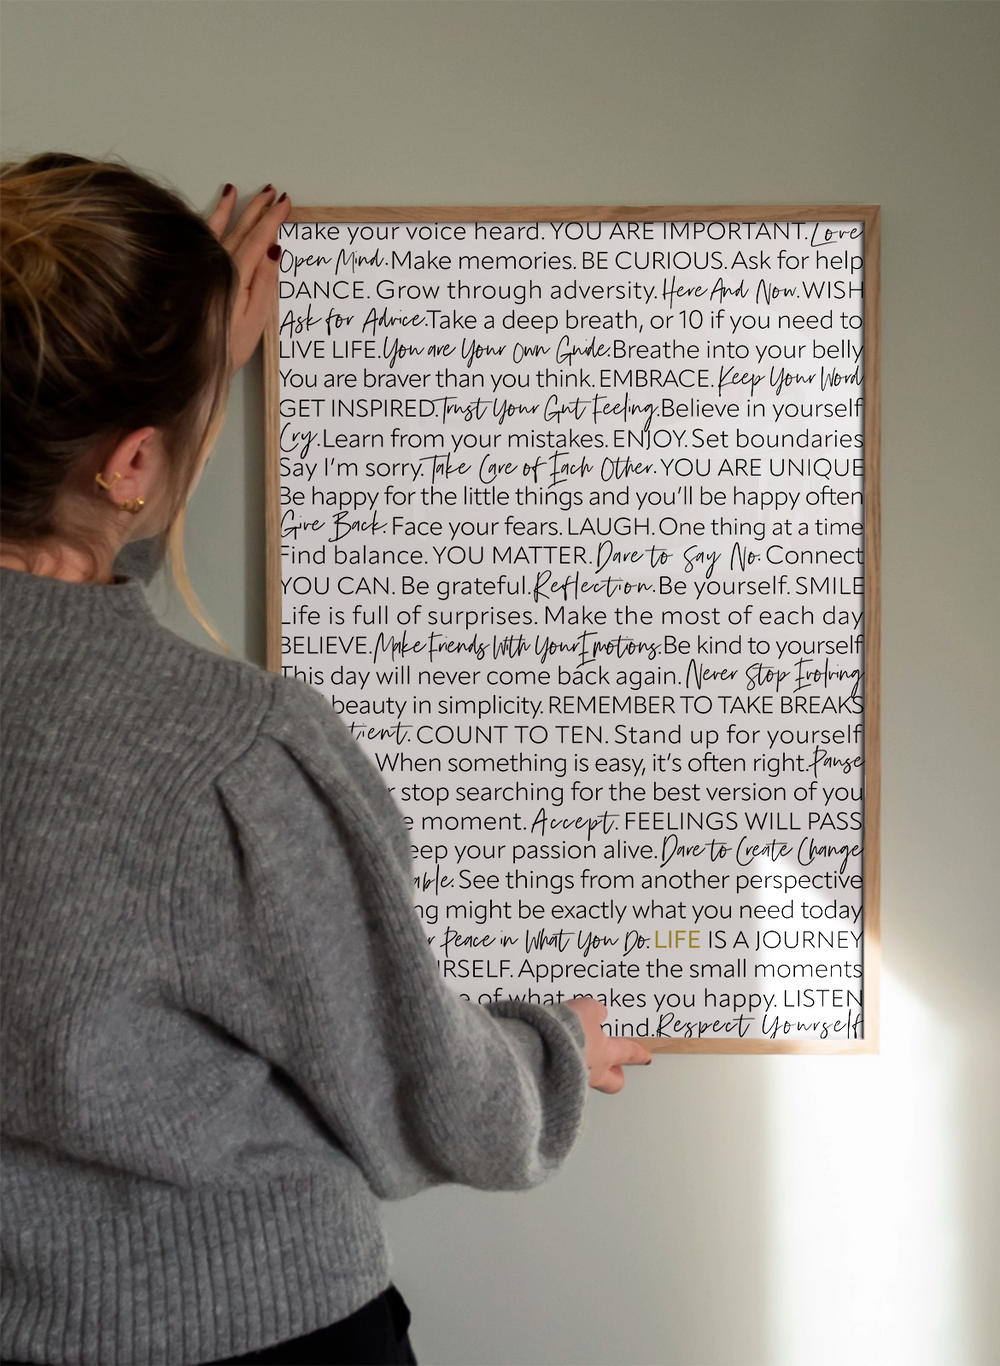 Make your voice heard. YOU ARE IMPORTANT. Love
Open Mind. Make memories. BE CURIOUS. Ask for help
DANCE. Grow through adversity. Here And Now. WISH
Ask for Advice. Take a deep breath, or 10 if you need to
LIVE LIFE. You are Your Own Guide. Breathe into your belly
You are braver than you think. EMBRACE. Keep Your Word
GET INSPIRED. Trust Your Gut Feeling. Believe in yourself
Cry. Learn from your mistakes. ENJOY. Set boundaries
Say I'm sorry. Take Care of Each Other. YOU ARE UNIQUE
Be happy for the little things and you'll be happy often
Give Back. Face your fears. LAUGH. One thing at a time
Find balance. YOU MATTER. Dare to Say No. Connect
YOU CAN. Be grateful. Reflection. Be yourself. SMILE
Life is full of surprises. Make the most of each day
BELIEVE. Make Friends With Your Emotions. Be kind to yourself
This day will never come back again. Never Stop Evolving
beauty in simplicity. REMEMBER TO TAKE BREAKS
COUNT TO TEN. Stand up for yourself
When something is easy, it's often right. Pause
stop searching for the best version of you
moment. Accept. FEELINGS WILL PASS
your passion alive. Dare to Create Change
See things from another perspective
might be exactly what you need today
Peace in What You Do. LIFE IS A JOURNEY
Appreciate the small moments
of what makes you happy. LISTEN
Respect Yourself